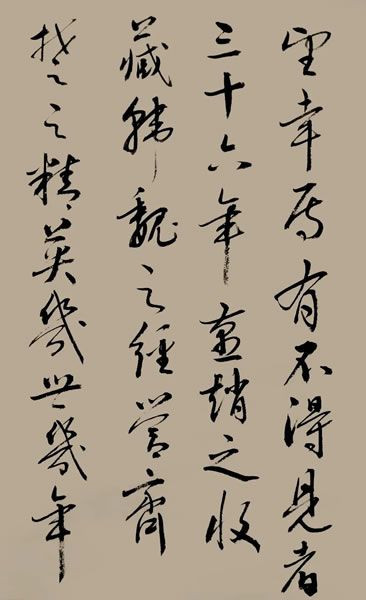 望幸焉有不得見者
三十六年燕趙之收
藏韓魏之經營齊
楚之精英幾世幾年